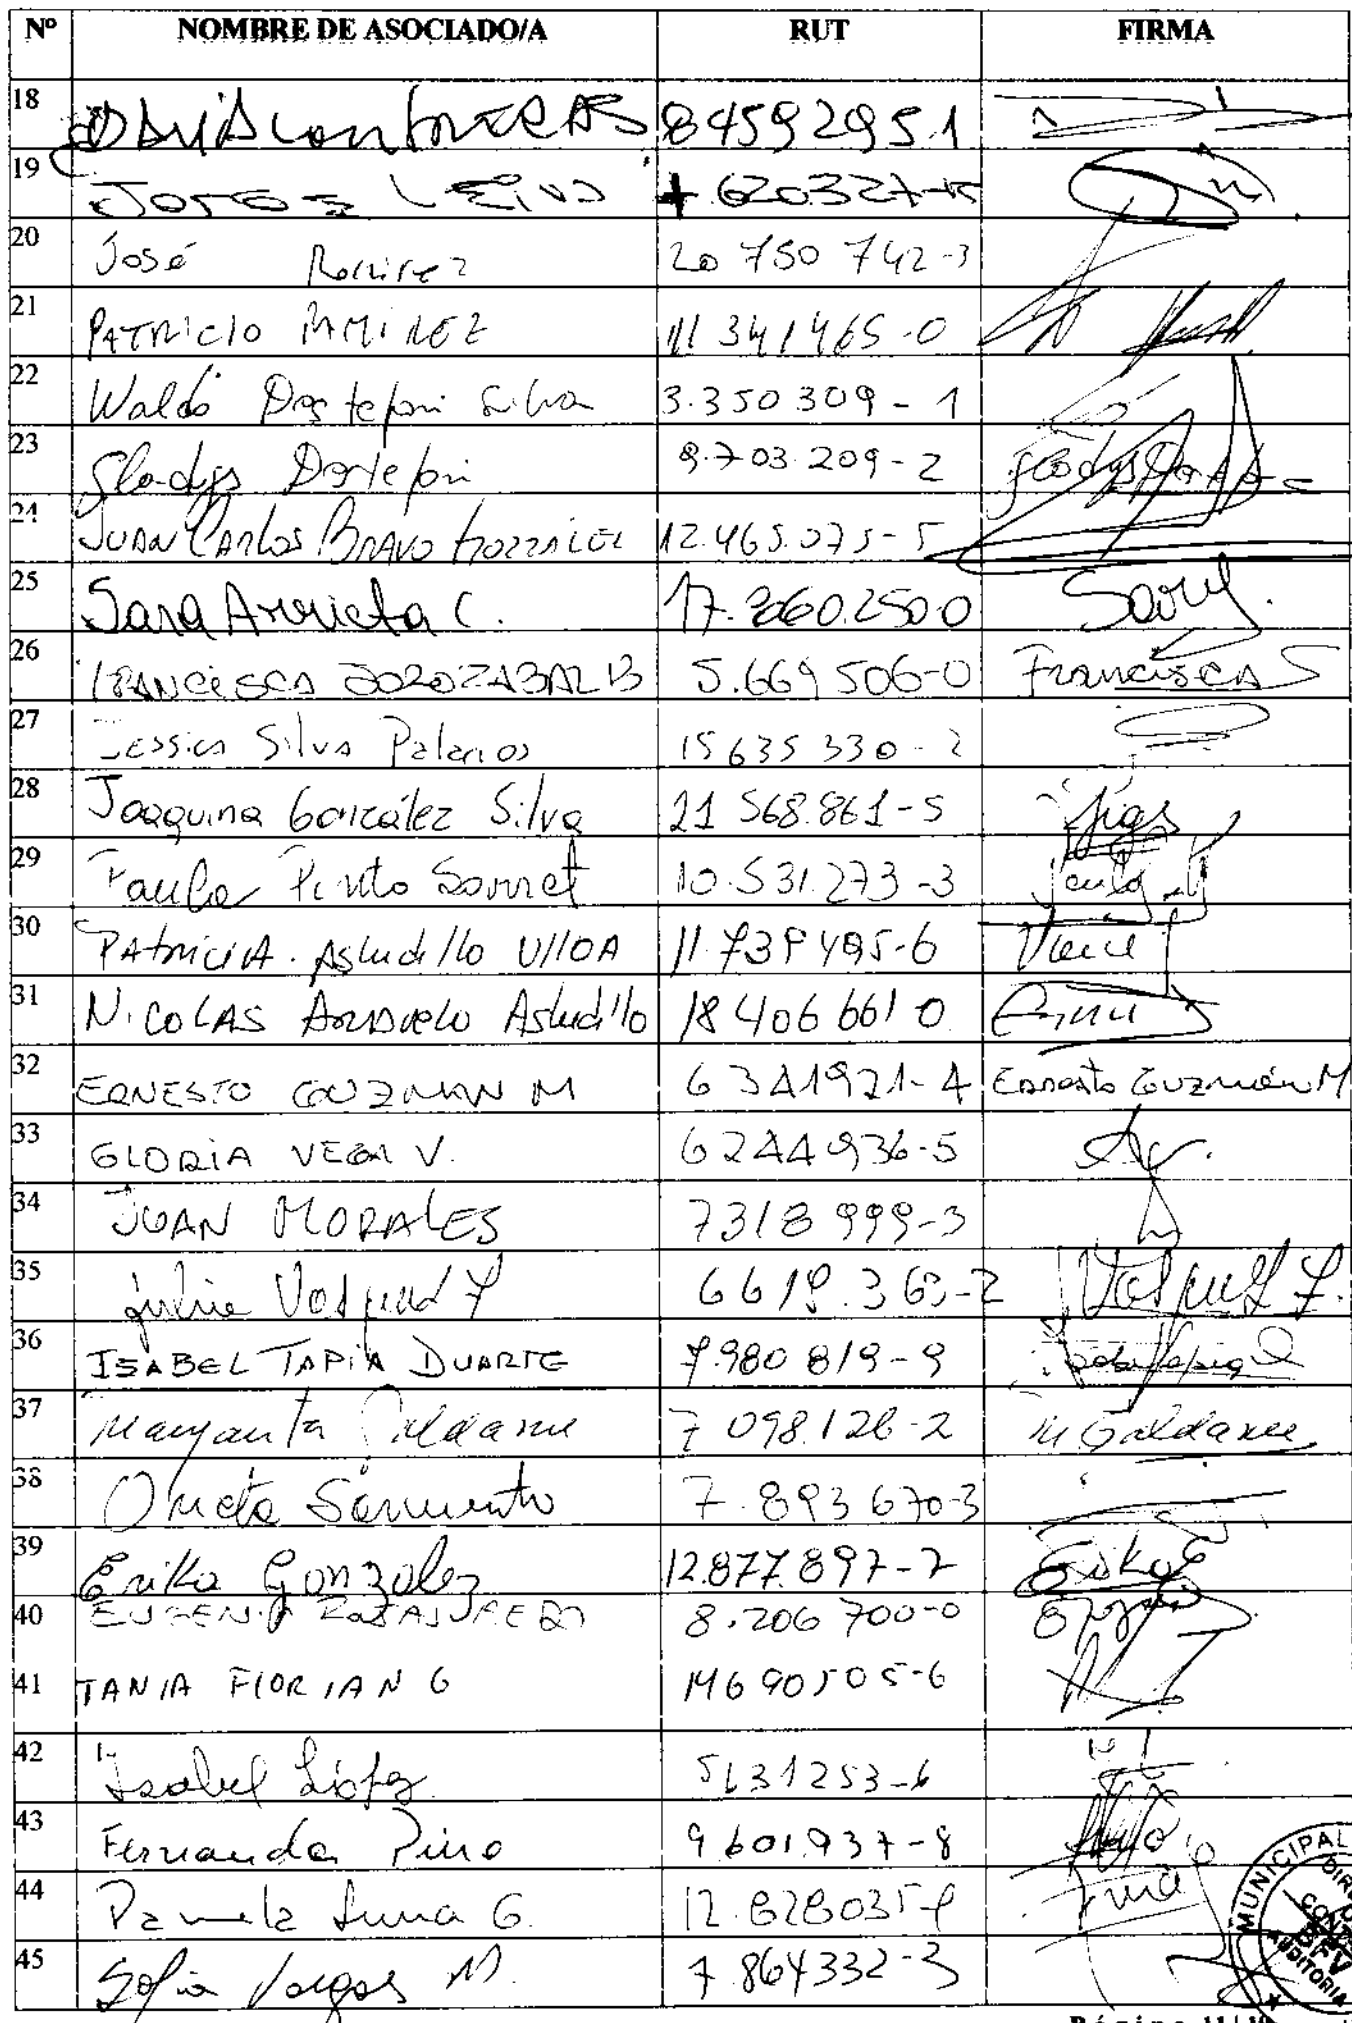 Nº NOMBRE DE ASOCIADO/A RUT FIRMA
18 DAVID Contreras 8459295-1
19 620327-K
20 José Ramirez 20 750 742-3
21 PATRICIO RAMIREZ 11 341465-0
22 Waldo Destefani Silva 3.350309-1
23 Gladys Destefani 9.703.209-2
24 JUAN CARLOS BRAVO GONZALEZ 12.465.075-5
25 Sara Arrieta C. Sary.
26 FRANCISCA JOROZABAL B 5.669506-0 FRANCISCA S
27 Jessica Silva Palacios 15635330-2
28 Joaquina González Silva 21 568.861-5 Jigs
29 Paula Pinto Sorret 10.531.273-3 Paula
30 PATRICIA. Astudillo UlloA
31 NICOLAS Astudillo 18 406 661 0
32 ERNESTO GUZMAN M 6341921-4 Ernesto GUZMÁN M
33 GLORIA VEGA V. 6244936-5
34 JUAN MORALES 7318999-3
35 Julia 6619.363-2
36 ISABEL TAPIA DUARTE 7.980819-9
37 Margarita Galdame 7 098.126-2 M Galdame
38 Orieta Sarmiento 7.893670-3
39 Erika Gonzalez 12.877.897-7 Erika G
40 EUGENIA 8.206700-0
41 TANIA FLORIAN G 14690505-6
42 Isabel López 5631253-6
43 Fernanda Pino 9601.937-8
44 Pamela Luna G.
45 Sofia Vargas M. 7.864332-3
MUNICIPAL
AUDITORIA
Página 11/